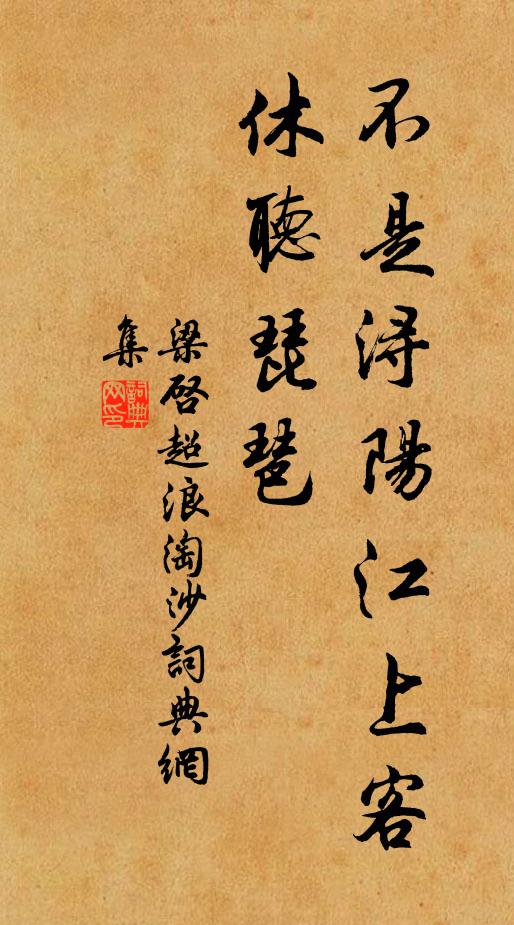 不是潯陽江上客
休聽琵琶
梁啓超浪淘沙詞典網
集
詞典網印